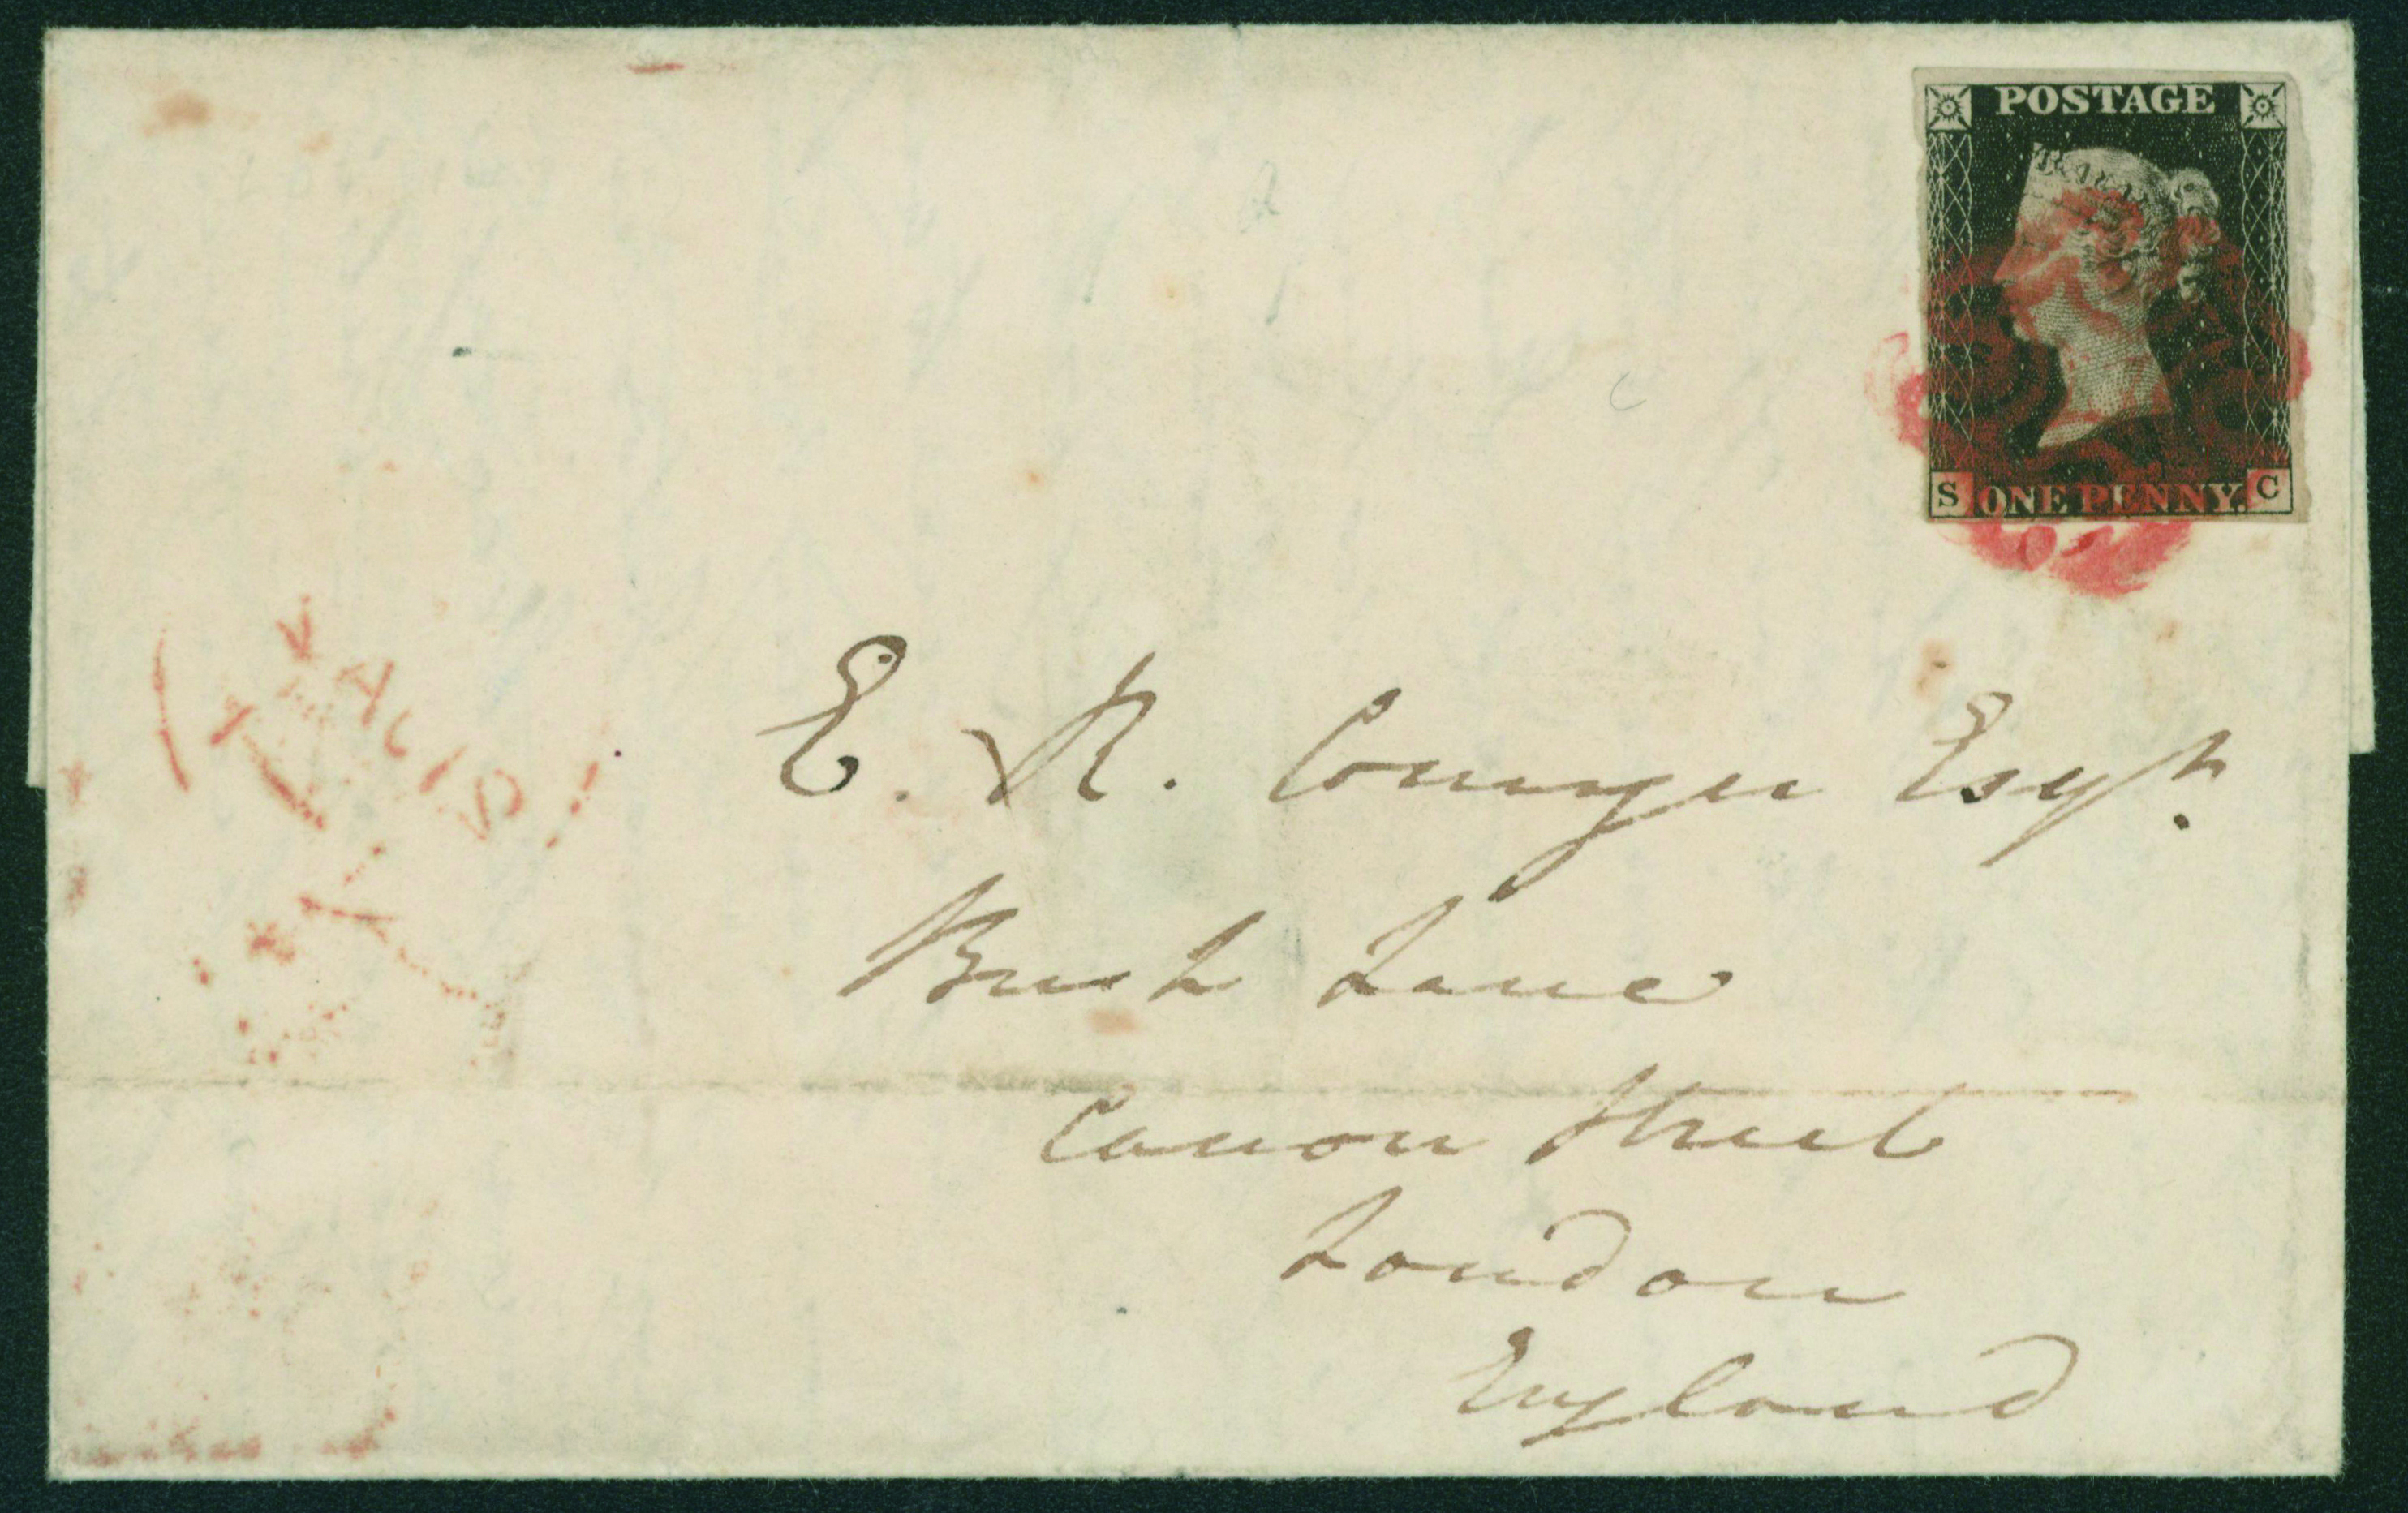 POSTAGE
S ONE PENNY. C
E. R. Comyn Esqr.
Bush Lane
Canon Street
London
England